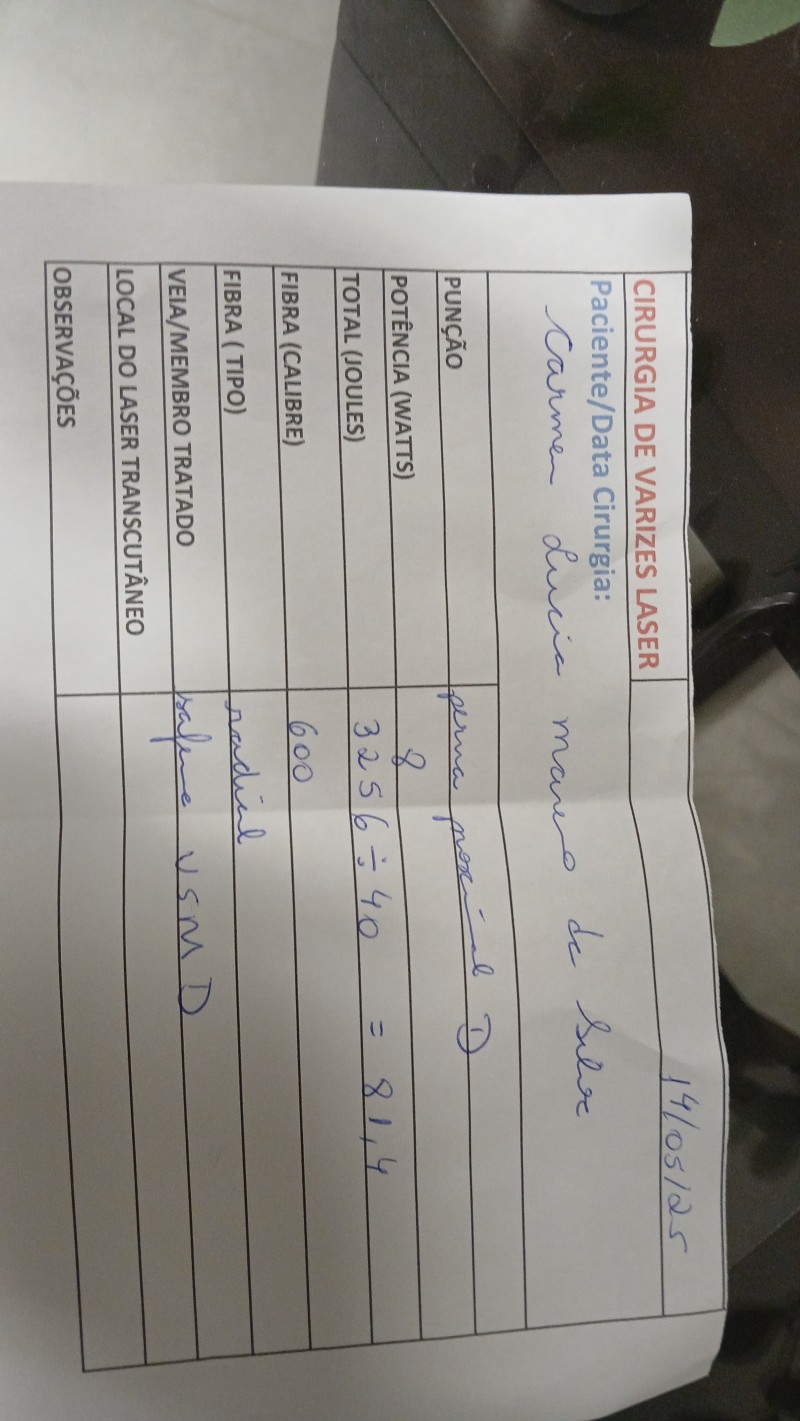 CIRURGIA DE VARIZES LASER 14/05/25
Paciente/Data Cirurgia:
Carmen Lucia de Silva
PUNÇÃO perna proximal D
POTÊNCIA (WATTS) 8
TOTAL (JOULES) 3256 ÷ 40 = 81,4
FIBRA (CALIBRE) 600
FIBRA ( TIPO) radial
VEIA/MEMBRO TRATADO VSM D
LOCAL DO LASER TRANSCUTÂNEO
OBSERVAÇÕES